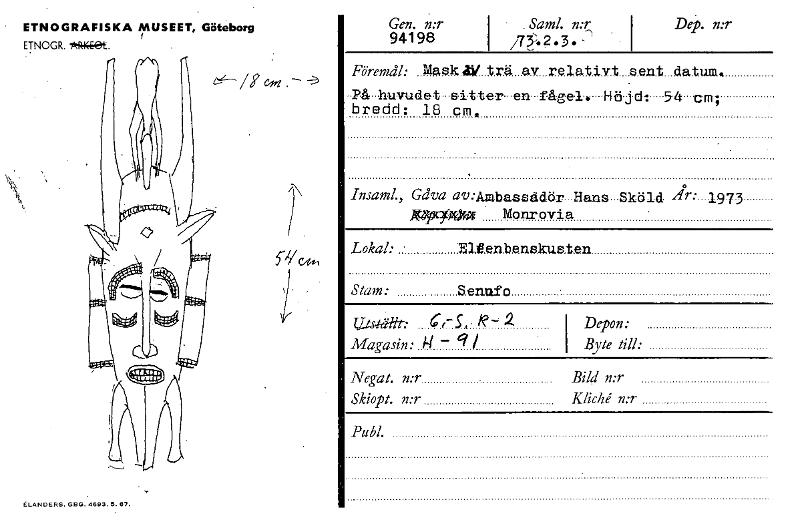 ETNOGRAFISKA MUSEET, Göteborg
ETNOGR. ARKEOL.
18 cm.
54 cm
ELANDERS, GBG. 4693. 5. 67.
Gen. n:r Saml. n:r Dep. n:r
94198 73.2.3.
Föremål: Mask av trä av relativt sent datum.
På huvudet sitter en fågel. Höjd: 54 cm;
bredd: 18 cm.
Insaml., Gåva av: Ambassadör Hans Sköld År: 1973
Monrovia
Lokal: Elfenbenskusten
Stam: Senufo
Utställt: G.-S. R-2 Depon:
Magasin: H-91 Byte till:
Negat. n:r Bild n:r
Skiopt. n:r Kliché n:r
Publ.